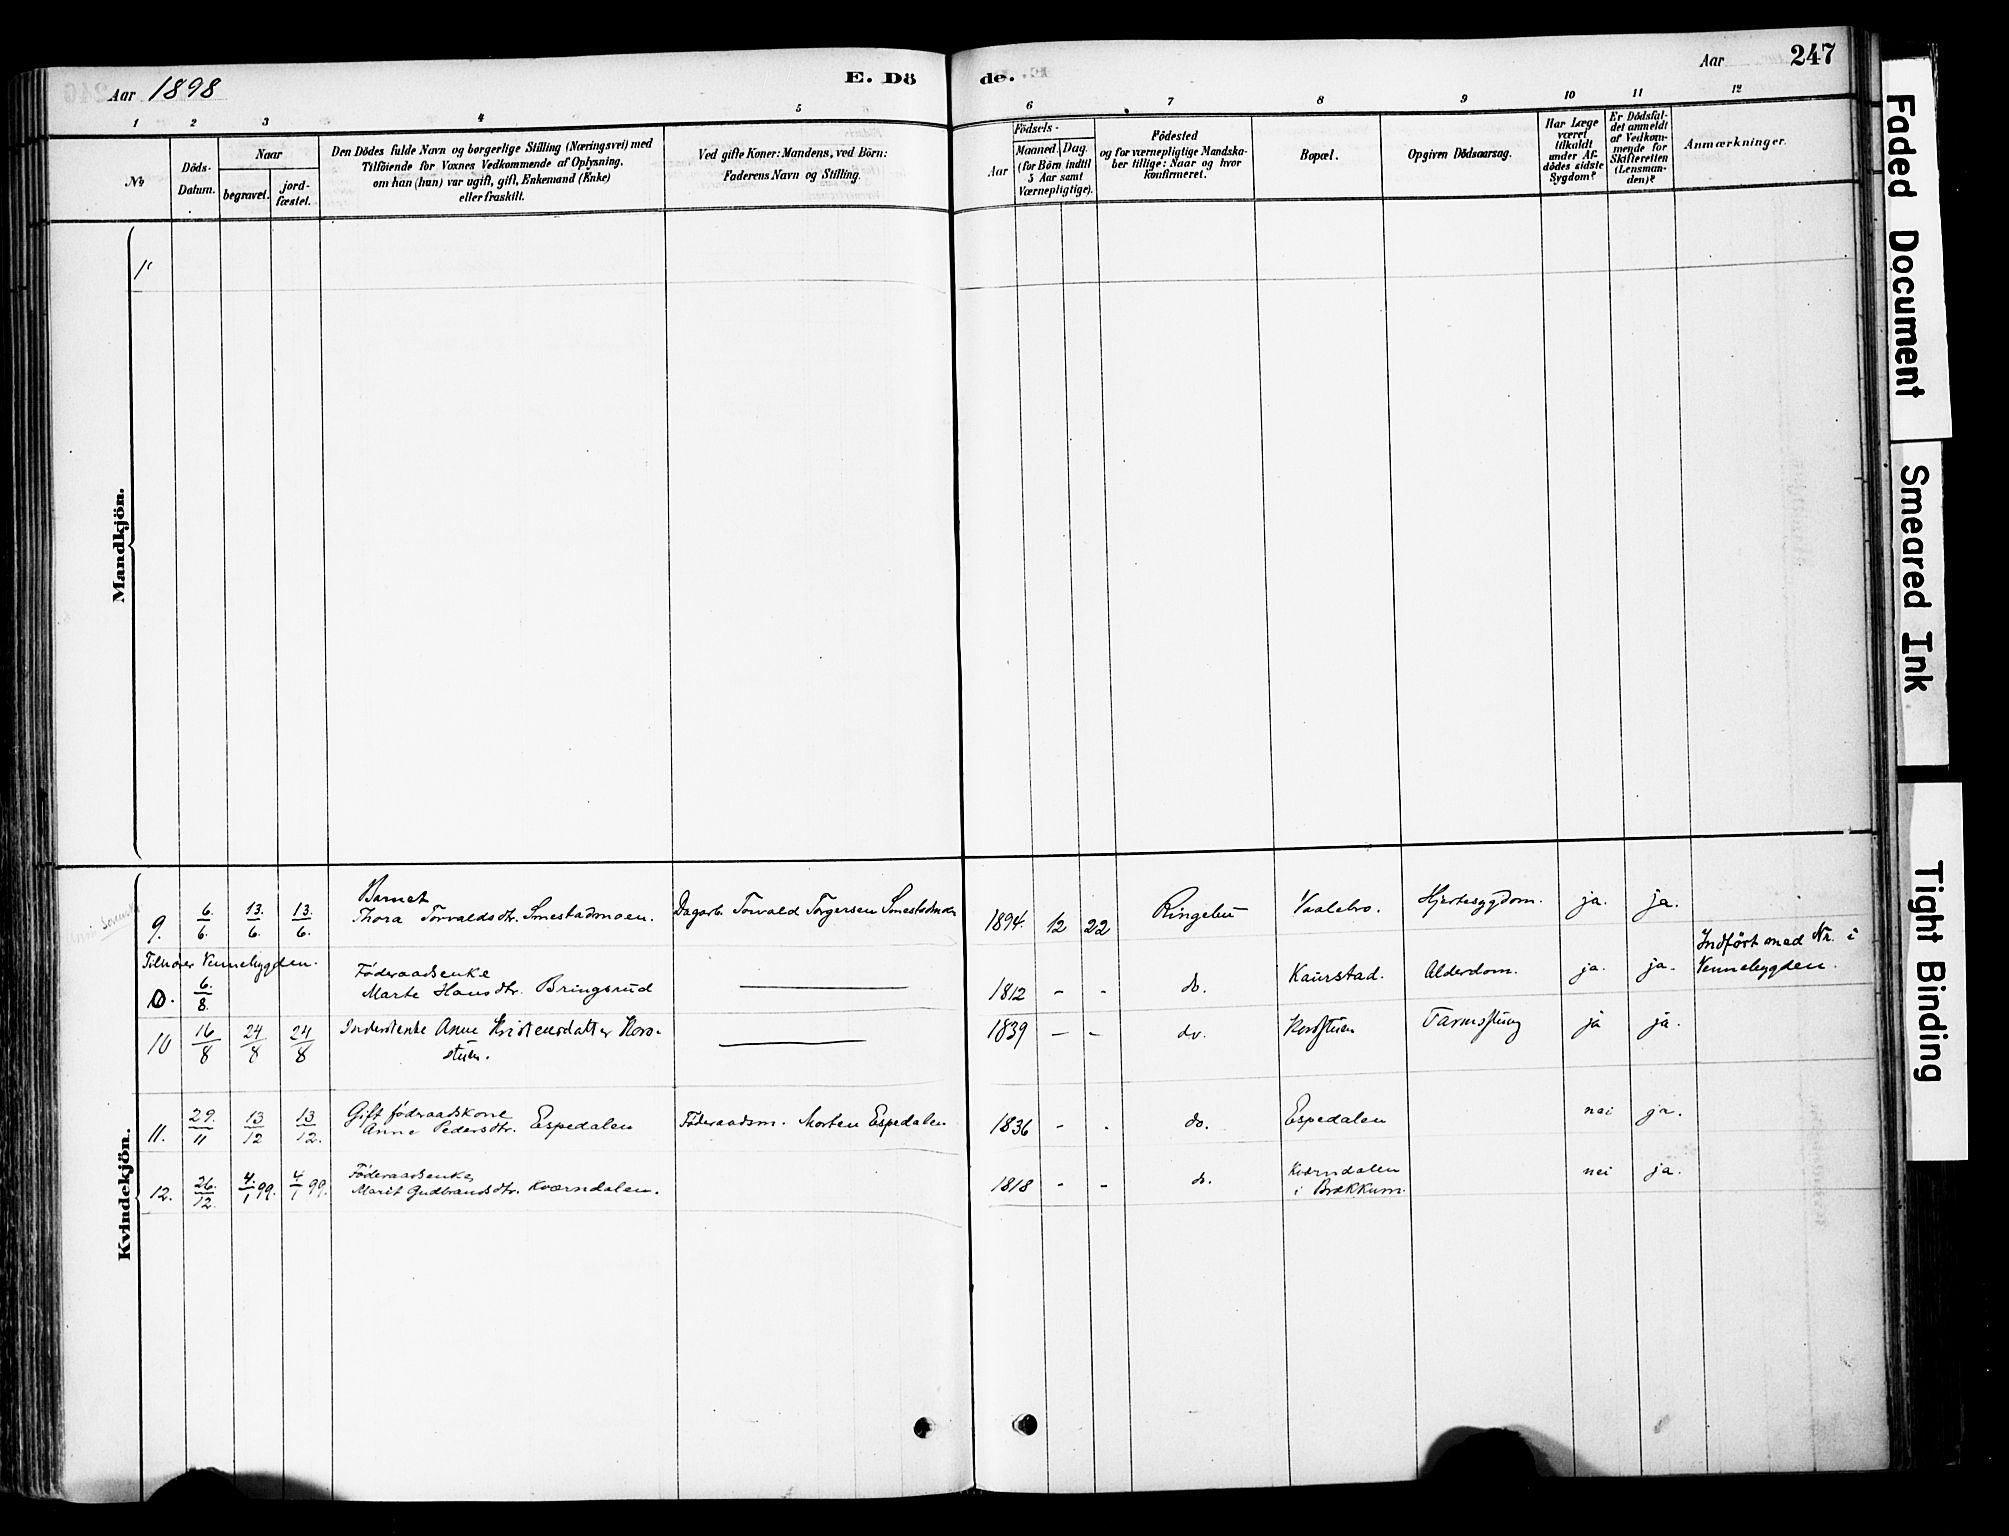 Aar 1898
E. Dö
de.
Aar
247
1 2 3 4 5 6 7 8 9 10 11 12
No
Döds-
Datum.
Naar
begravet.
jord-
fæstet.
Den Dödes fulde Navn og borgerlige Stilling (Næringsvei) med
Tilföiende for Voxnes Vedkommende af Oplysning,
om han (hun) var ugift, gift, Enkemand (Enke)
eller fraskilt.
Ved gifte Koner: Mandens, ved Börn:
Faderens Navn og Stilling.
Födsels-
Aar
Maaned. Dag.
(for Börn indtil
5 Aar samt
Værnepligtige).
Födested
og for værnepligtige Mandska-
ber tillige: Naar og hvor
konfirmeret.
Bopæl.
Opgiven Dödsaarsag.
Har Læge
været
tilkaldt
under Af-
dödes sidste
Sygdom?
Er Dödsfal-
det anmeldt
af Vedkom-
mende for
Skifteretten
(Lensman-
den)?
Anmærkninger.
Mandkjön.
Kvindekjön.
Barnet
9. 6/6. 13/6. 13/6. Thora Torvaldsdtr. Smestadmoen. Dagarb. Torvald Torgersen Smestadmoen 1894. 12 22 Ringebu Vaalebro. Hjertesygdom. ja. ja.
Tilhører Vennebygden.
Føderaadsenke
0. 6/8. Marte Hansdtr. Bringsrud 1812 - - do. Kaurstad. Alderdom. ja. ja.
Indført med Nr. i
Vennebygden.
10 16/8 24/8 24/8 Inderstenke Anne Kristensdatter Kors-
stuen. 1839 - - do. Korsstuen Tarmslyng ja ja.
Gift føderaadskone
11. 29/11 13/12 13/12. Anne Pedersdtr. Espedalen Føderaadsm. Morten Espedalen 1836 - . do. Espedalen nei ja.
Føderaadsenke
12. 26/12. 4/1 99. 4/1 99. Marit Gudbrandsdtr. Kværndalen. 1818 - - do. Kværndalen
i Brækkum. nei ja.
Faded Document
Smeared Ink
Tight Binding